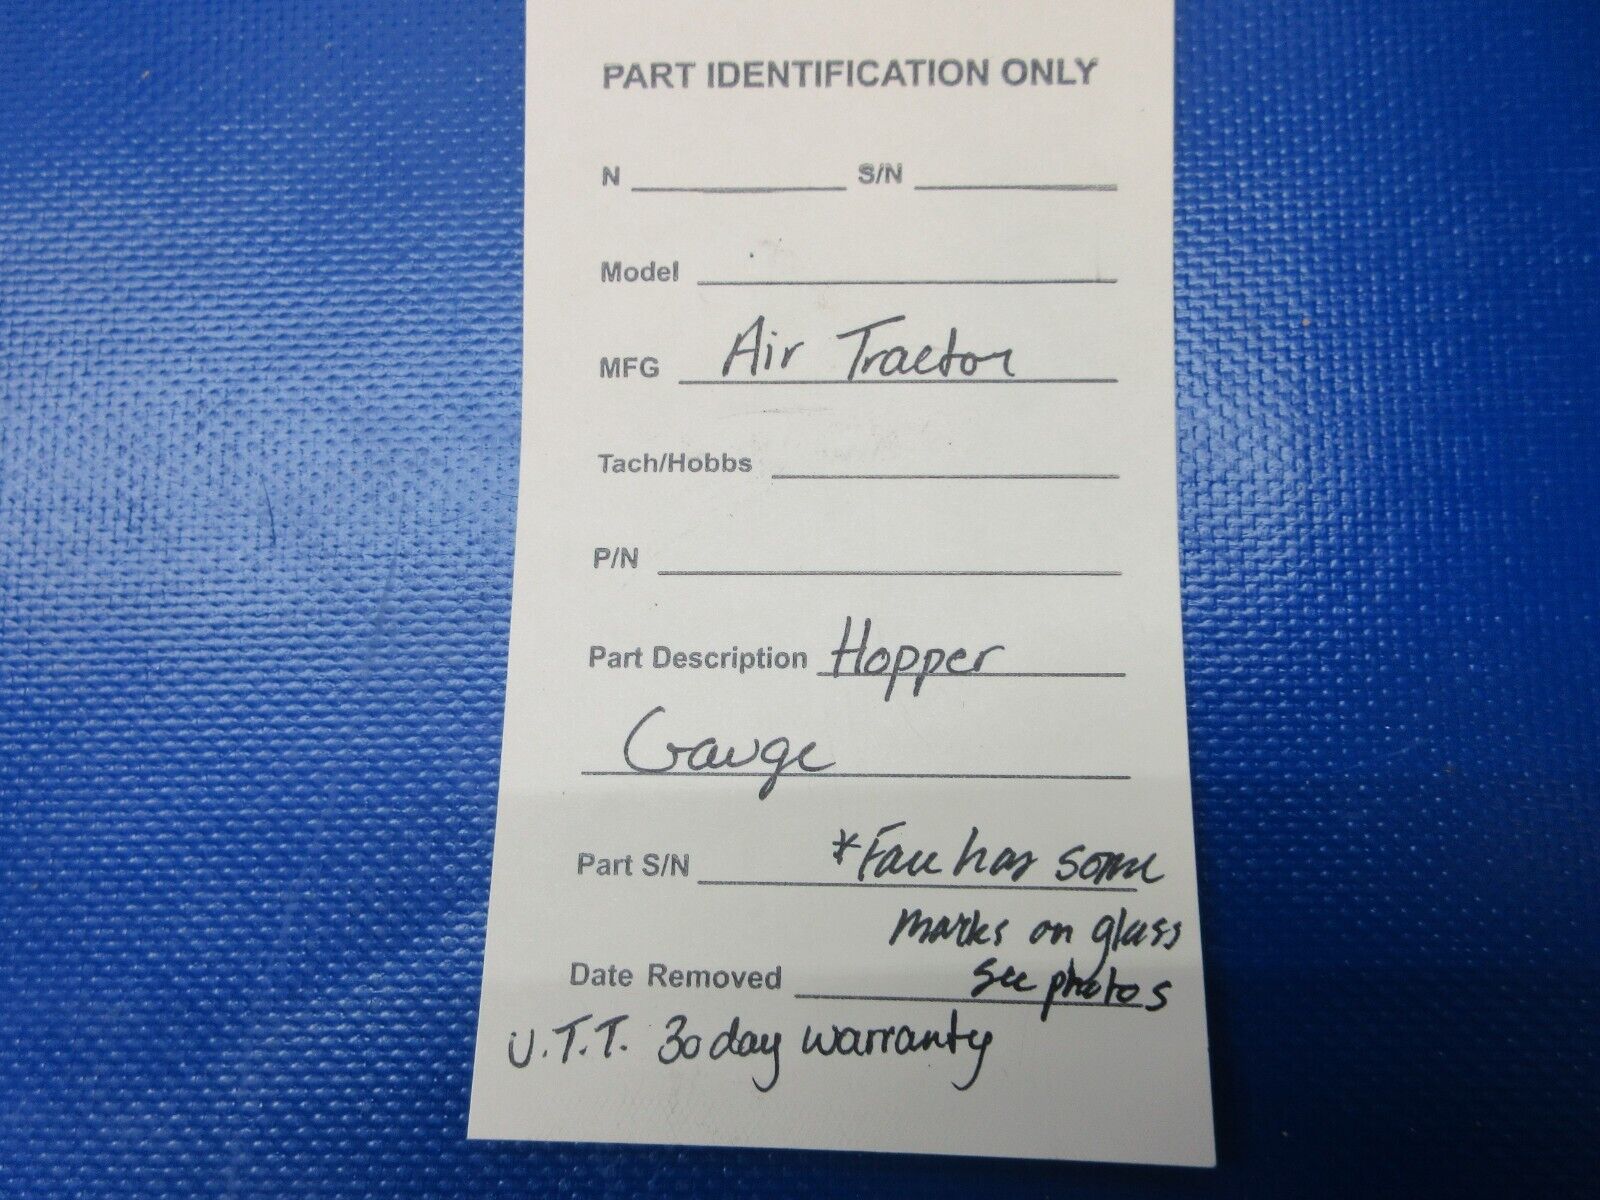 PART IDENTIFICATION ONLY
N S/N
Model
MFG Air Tractor
Tach/Hobbs
P/N
Part Description Hopper
Gauge
Part S/N *Face has some
marks on glass
Date Removed see photos
U.T.T. 30 day warranty